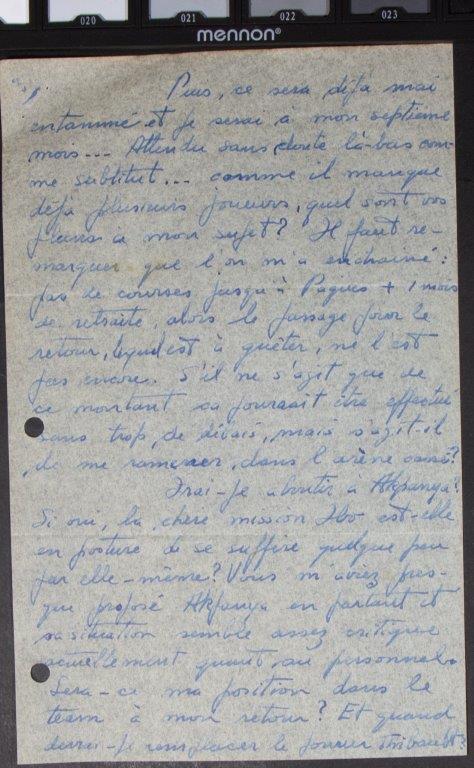 020 021 022 023
mennon®
Puis, ce sera déjà mai
entammé et je serai à mon septième
mois... Attendu sans doute là-bas com-
me subtitut... comme il manque
déjà plusieurs joueurs, quel sont vos
plans à mon sujet? Il faut re-
marquer que l'on m'a enchainé:
pas de courses jusqu'à Paques + 1 mois
de retraite, alors le passage pour le
retour, lequel est à quêter, ne l'est
pas encore. S'il ne s'agit que de
ce montant ça pourrait être effectué
sans trop de délais, mais s'agit-il
de me ramener dans l'arène aussi?
Irai-je aboutir à Akpanya?
Si oui, la chère mission Ibo est-elle
en posture de se suffire quelque peu
par elle-même? Vous m'aviez pres-
que proposé Akpanya en partant et
sa situation semble assez critique
actuellement quant au personnel.
Sera-ce ma position dans le
team à mon retour? Et quand
devrai-je remplacer le joueur Thibault?